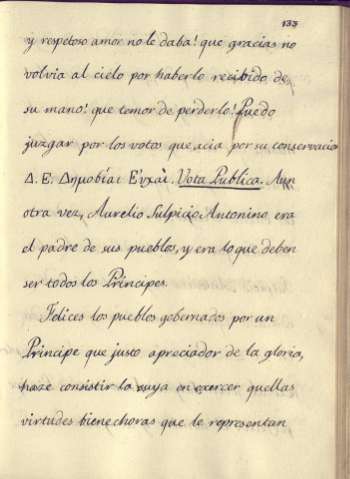 133
y respetoso amor no le daba! que gracias no
volvia al cielo por haberlo recibido de
su mano! que temor de perderlo! Puedo
juzgar por los votos que acia por su conservacio
Δ. Ε. Δημοϐίαι Εὐχαὶ. Vota Publica. Aun
otra vez, Aurelio Sulpicio Antonino era
el padre de sus pueblos, y era lo que deben
ser todos los Principes.
Felices los pueblos gobernados por un
Principe que justo apreciador de la gloria,
haze consistir la suya en exercer quellas
virtudes bienechoras que le representan